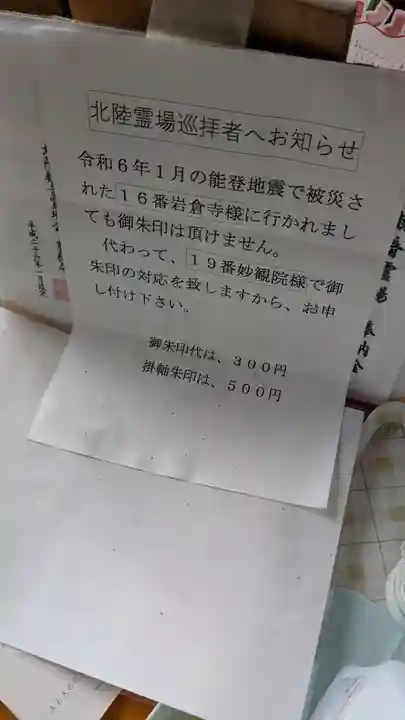 北陸霊場巡拝者へお知らせ
令和6年1月の能登地震で被災さ
れた16番岩倉寺様に行かれまし
ても御朱印は頂けません。
代わって、19番妙観院様で御
朱印の対応を致しますから、お申
し付け下さい。
御朱印代は、300円
掛軸朱印は、500円